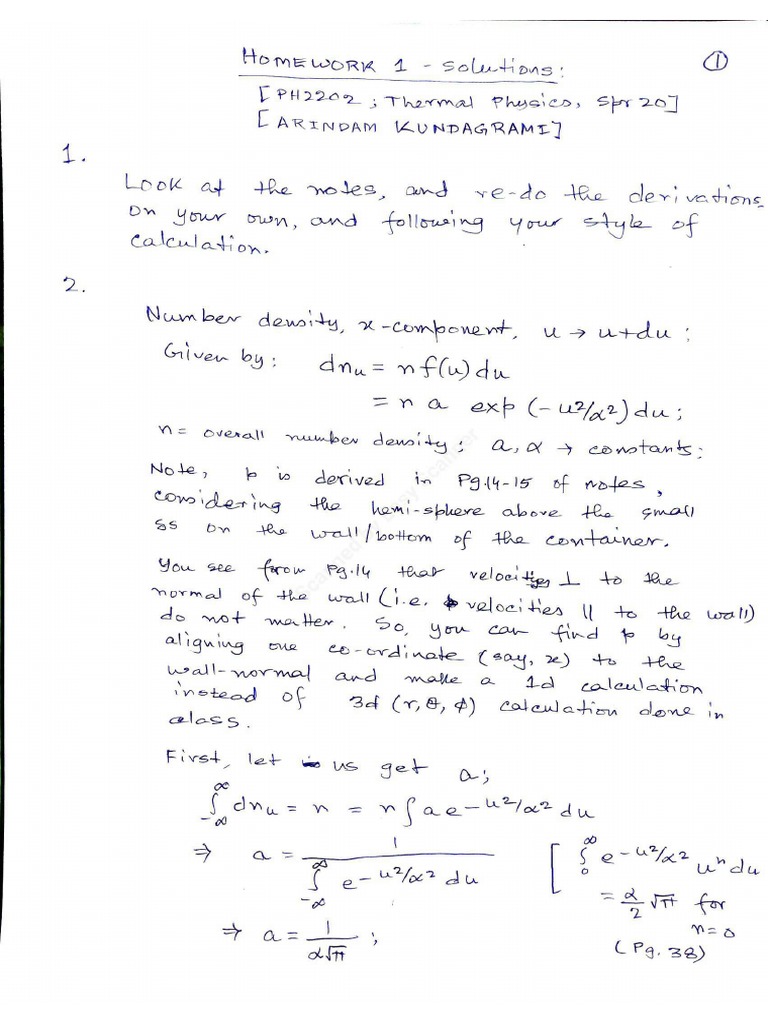 HOMEWORK 1 - Solutions:
①
[PH2202 ; Thermal Physics, Spr 20]
[ARINDAM KUNDAGRAMI]
1.
Look at the notes, and re-do the derivations
on your own, and following your style of
calculation.
2.
Number density, x-component, u → u+du :
Given by: dnᵤ = n f(u) du
= n a exp (- u²/α²) du ;
n = overall number density ; a, α → constants ;
Note, p is derived in Pg.14-15 of notes,
considering the hemi-sphere above the small
δs on the wall/bottom of the container.
You see from Pg.14 that velocities ⊥ to the
normal of the wall (i.e. velocities || to the wall)
do not matter. So, you can find p by
aligning one co-ordinate (say, x) to the
wall-normal and make a 1d calculation
instead of 3d (r, θ, φ) calculation done in
class.
First, let us get a ;
∫_{-∞}^{∞} dnᵤ = n = n ∫ a e^{-u²/α²} du
⇒ a = 1 / ∫_{-∞}^{∞} e^{-u²/α²} du
⇒ a = 1/(α√π) ;
[ ∫_{0}^{∞} e^{-u²/α²} uⁿ du
= α/2 √π for
n=0
(Pg. 38)
Scanner